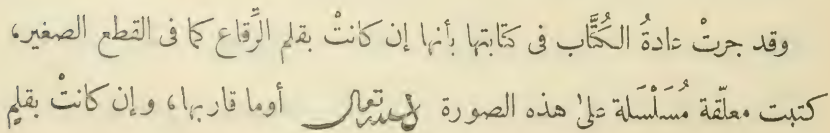 وقد جرتْ عادةُ الكُتَّاب فى كتابتها بأنها إن كانتْ بقلم الرِّقاع كما فى القطع الصغير،
كتبت معلّقة مُسَلْسَلة علىٰ هذه الصورة أوما قاربها، وإن كانتْ بقلم